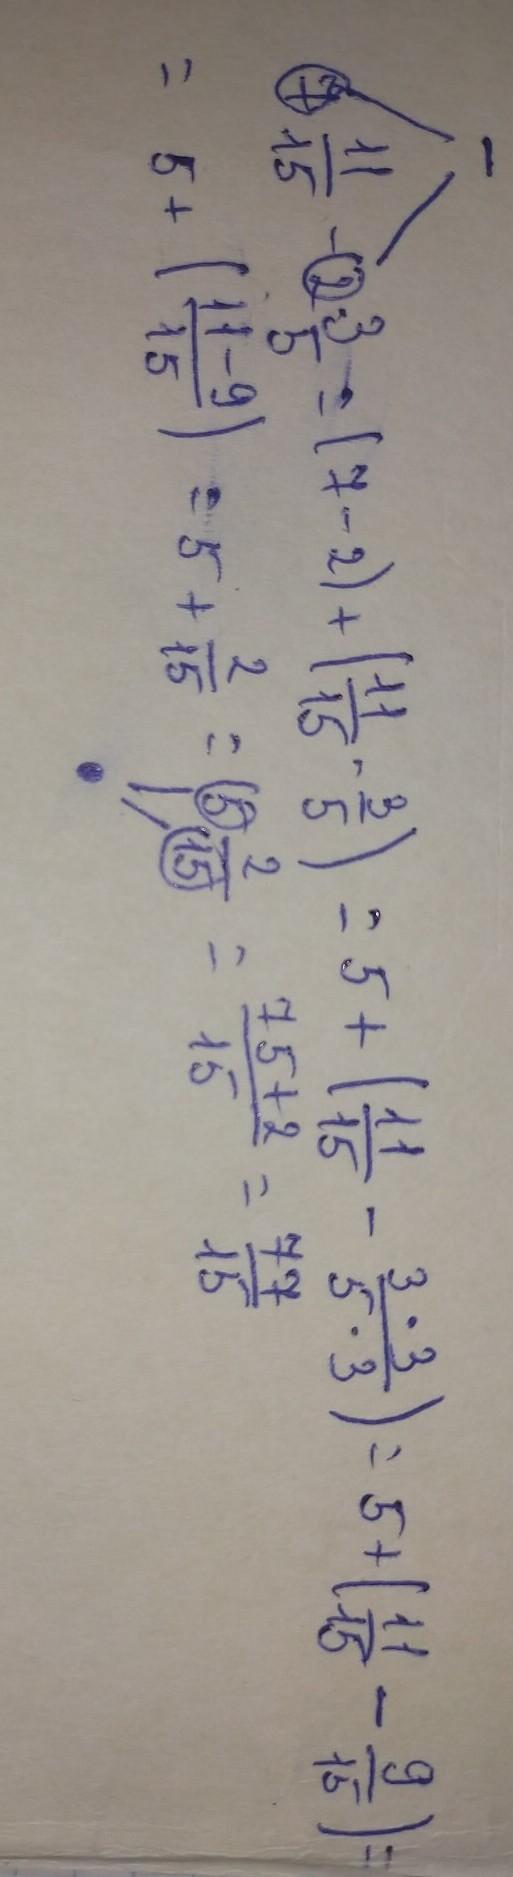 7 11/15 - 2 3/5 = (7-2) + (11/15 - 3/5) = 5 + (11/15 - 3·3/5·3) = 5 + (11/15 - 9/15) =
= 5 + (11-9/15) = 5 + 2/15 = 5 2/15 = 75+2/15 = 77/15